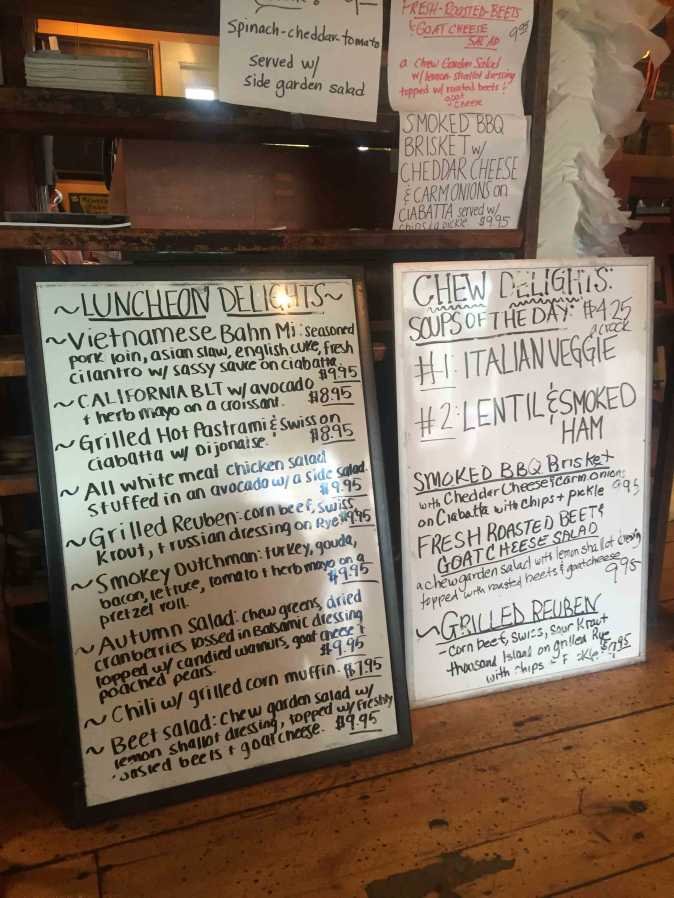 Spinach-cheddar-tomato
served w/
side garden salad
FRESH-ROASTED-BEETS
& GOAT CHEESE
SALAD 9.95
a Chew Garden Salad
w/ lemon shallot dressing
topped w/ roasted beets &
goat
cheese
SMOKED BBQ
BRISKET w/
CHEDDAR CHEESE
& CARM ONIONS on
CIABATTA served w/
chips & a pickle $9.95
~LUNCHEON DELIGHTS~
~Vietnamese Bahn Mi: seasoned
pork loin, asian slaw, english cuke, fresh
cilantro w/ sassy sauce on ciabatta
$9.95
~CALIFORNIA BLT w/ avocado
+ herb mayo on a croissant. $8.95
~Grilled Hot Pastrami & Swiss on
ciabatta w/ Dijonaise. $8.95
~All white meat chicken salad
stuffed in an avocado w/ a side salad.
$9.95
~Grilled Reuben: corn beef, swiss
Krout, + russian dressing on Rye $9.95
~Smokey Dutchman: turkey, gouda,
bacon, lettuce, tomato + herb mayo on a
pretzel roll. $9.95
~Autumn Salad: chew greens, dried
cranberries tossed in Balsamic dressing
topped w/ candied walnuts, goat cheese +
poached pears. $9.95
~Chili w/ grilled corn muffin. $7.95
~Beet salad: Chew garden salad w/
lemon shallot dressing, topped w/ freshly
roasted beets + goat cheese. $9.95
CHEW DELIGHTS:
SOUPS OF THE DAY: $4.25
a crock
#1: ITALIAN VEGGIE
#2: LENTIL & SMOKED
HAM
SMOKED BBQ Brisket
with Chedder Cheese & carm onions
on Ciabatta with chips + pickle 9.95
FRESH ROASTED BEET &
GOAT CHEESE SALAD
a chew garden salad with lemon shallot dressing
topped with roasted beets & goat cheese
9.95
~GRILLED REUBEN
-corn beef, swiss, sour Kraut
thousand Island on grilled Rye
with chips $7.95